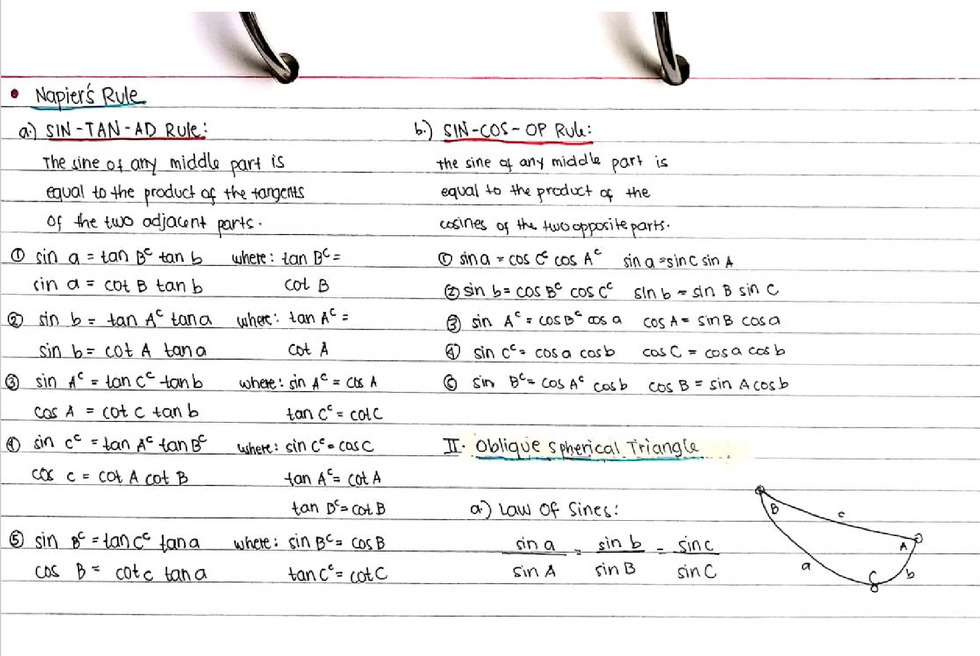 • Napier's Rule
a.) SIN-TAN-AD Rule:
The sine of any middle part is
equal to the product of the tangents
of the two adjacent parts.
① sin a = tan Bᶜ tan b where: tan Bᶜ =
sin a = cot B tan b cot B
② sin b = tan Aᶜ tan a where: tan Aᶜ =
sin b = cot A tan a cot A
③ sin Aᶜ = tan Cᶜ tan b where: sin Aᶜ = cos A
cos A = cot c tan b tan Cᶜ = cot C
④ sin Cᶜ = tan Aᶜ tan Bᶜ where: sin Cᶜ = cos C
cos c = cot A cot B tan Aᶜ = cot A
tan Bᶜ = cot B
⑤ sin Bᶜ = tan Cᶜ tan a where: sin Bᶜ = cos B
cos B = cot c tan a tan Cᶜ = cot C
b.) SIN-COS-OP Rule:
the sine of any middle part is
equal to the product of the
cosines of the two opposite parts.
① sin a = cos Cᶜ cos Aᶜ sin a = sin C sin A
② sin b = cos Bᶜ cos Cᶜ sin b = sin B sin C
③ sin Aᶜ = cos Bᶜ cos a cos A = sin B cos a
④ sin Cᶜ = cos a cos b cos C = cos a cos b
⑤ sin Bᶜ = cos Aᶜ cos b cos B = sin A cos b
II. Oblique Spherical Triangle
a.) Law of Sines:
sin a = sin b = sin c
sin A sin B sin C
B c A
a C b